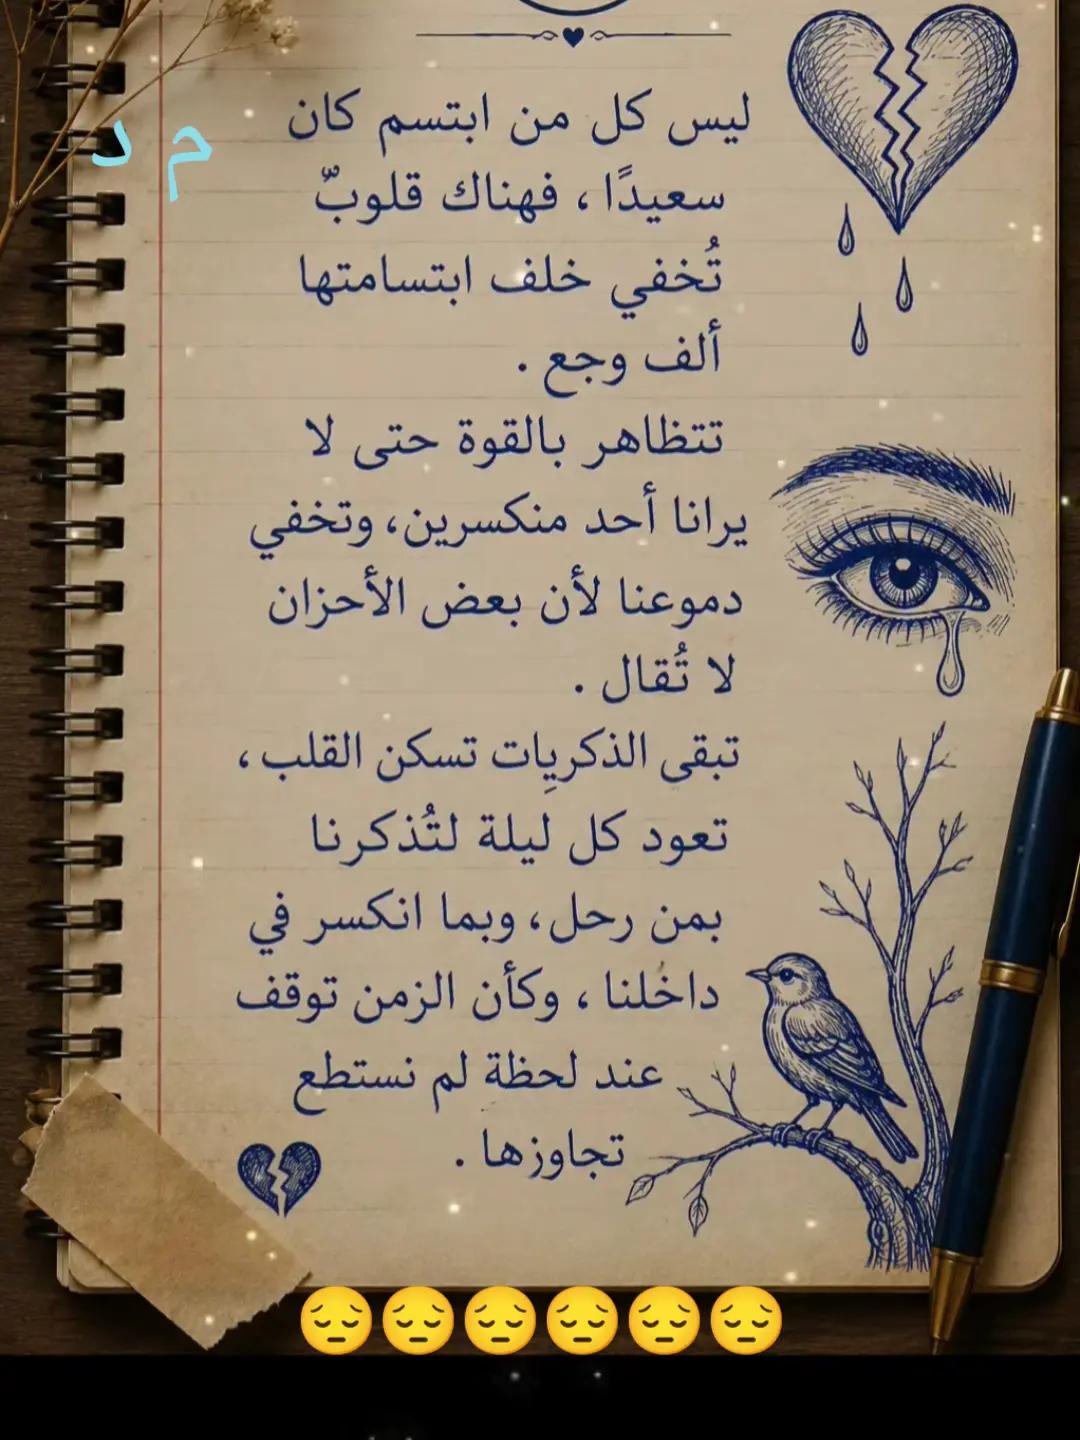 ليس كل من ابتسم كان
م د
سعيدًا ، فهناك قلوبٌ
تُخفي خلف ابتسامتها
ألف وجع .
تتظاهر بالقوة حتى لا
يرانا أحد منكسرين، وتخفي
دموعنا لأن بعض الأحزان
لا تُقال .
تبقى الذكريِات تسكن القلب ،
تعود كل ليلة لتُذكرنا
بمن رحل، وبما انكسر في
داخُلنا ، وكأن الزمن توقف
عند لحظة لم نستطع
تجاوزها .
😔😔😔😔😔😔